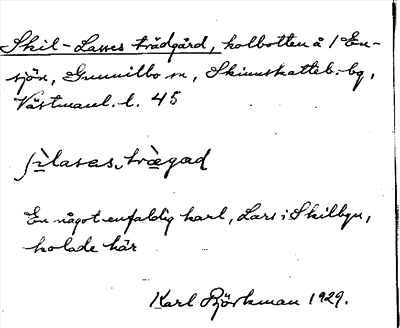 Skil-Lasses trädgård, kolbotten å 1 En-
sjön, Gunnilbo sn, Skinnskatteb:bg,
Västmanl. l. 45
lasas trægad
En något enfaldig karl, Lars i Skilbyn,
kolade här
Karl Björkman 1929.